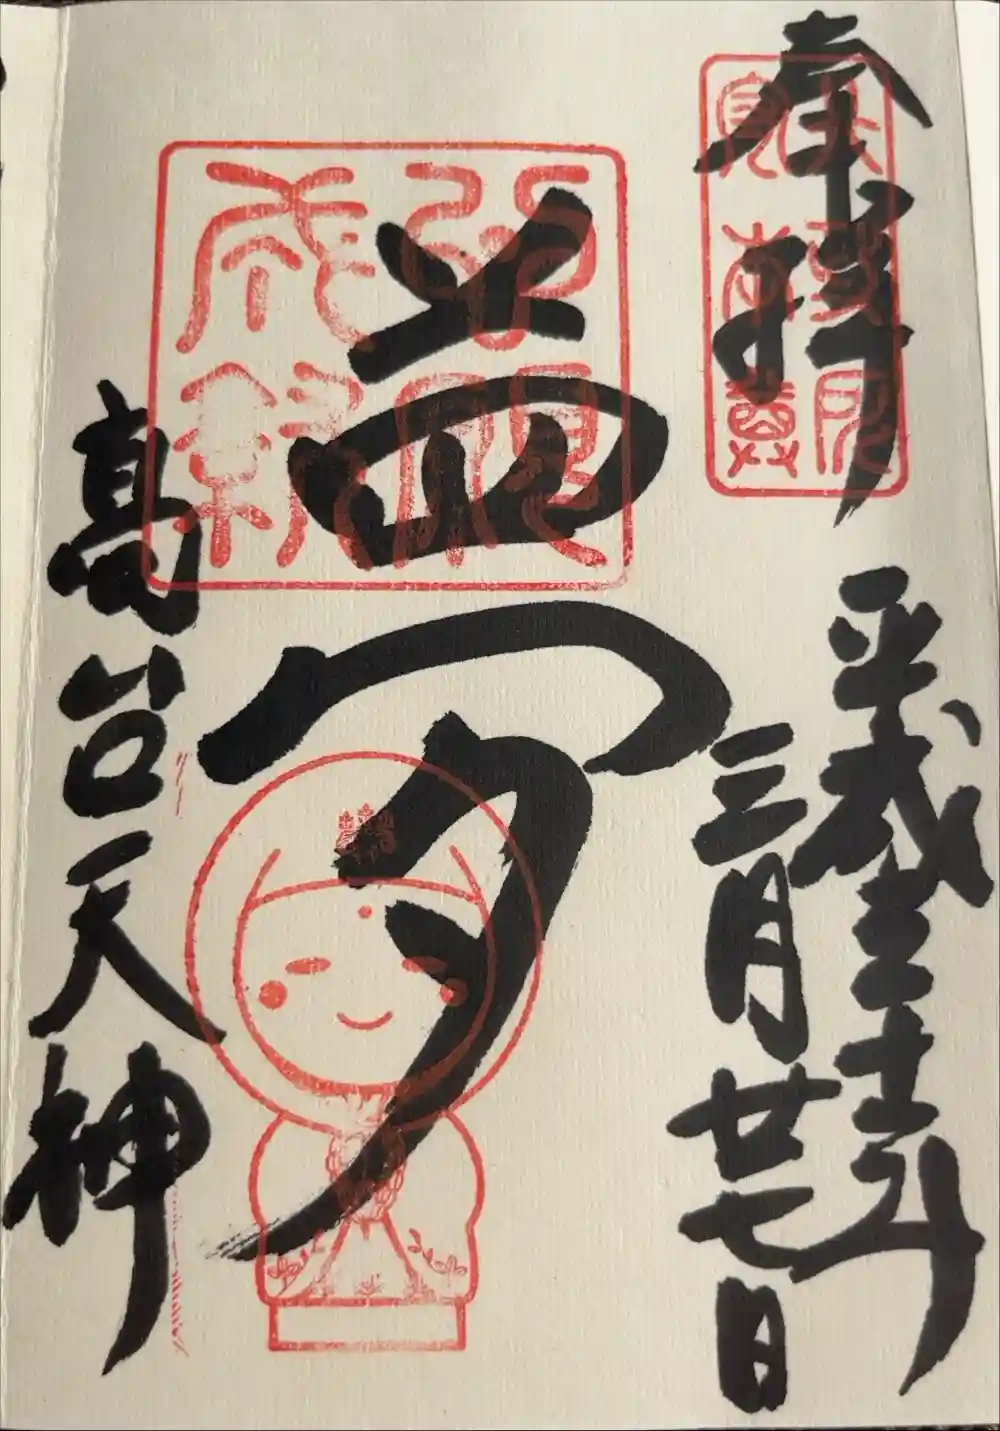 奉拝
平成三十年
三月廿七日
夢
高台天神